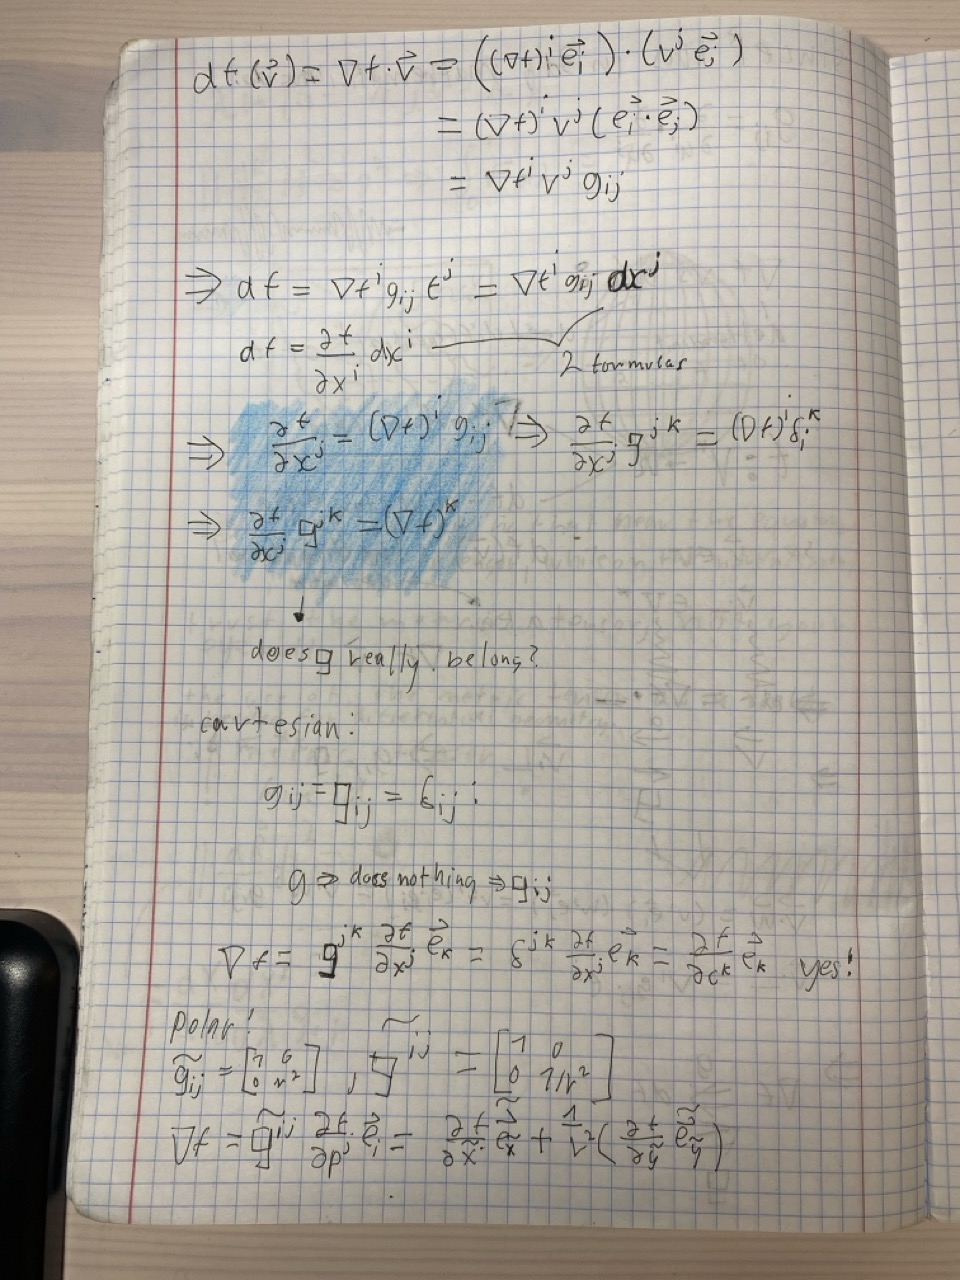 df(v⃗) = ∇f·v⃗ = ((∇f)^i e⃗_i)·(v^j e⃗_j)
= (∇f)^i v^j (e⃗_i·e⃗_j)
= ∇f^i v^j g_ij
⇒ df = ∇f^i g_ij ε^j = ∇f^i g_ij dx^j
df = ∂f/∂x^i dx^i
2 formulas
⇒ ∂f/∂x^j = (∇f)^i g_ij ⇒ ∂f/∂x^j g^jk = (∇f)^i δ_i^k
⇒ ∂f/∂x^j g^jk = (∇f)^k
does g really belong?
cartesian:
g_ij = g_ij = δ_ij :
g ⇒ does nothing ⇒ g_ij
∇f = g^jk ∂f/∂x^j e⃗_k = δ^jk ∂f/∂x^j e⃗_k = ∂f/∂c^k e⃗_k yes!
Polar!
g̃_ij = [1 0 0 r²] , g̃^ij = [1 0 0 1/r²]
∇f = g̃^ij ∂f/∂p^j e⃗_i = ∂f/∂x̃ e⃗_x̃ + 1/r² (∂f/∂ỹ e⃗_ỹ)